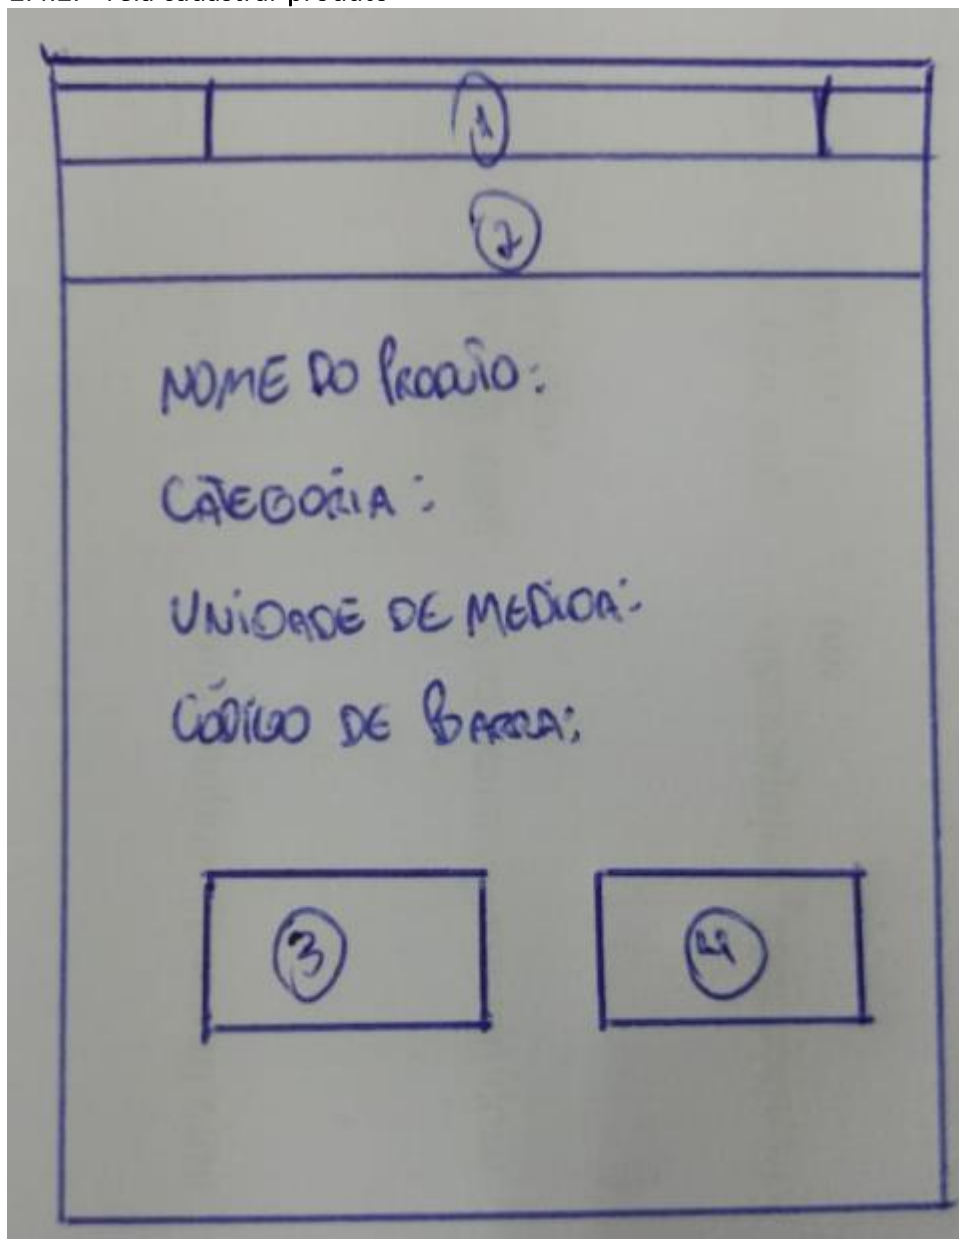 1
2
NOME DO PRODUTO:
CATEGORIA:
UNIDADE DE MEDIDA:
CÓDIGO DE BARRA:
3 4